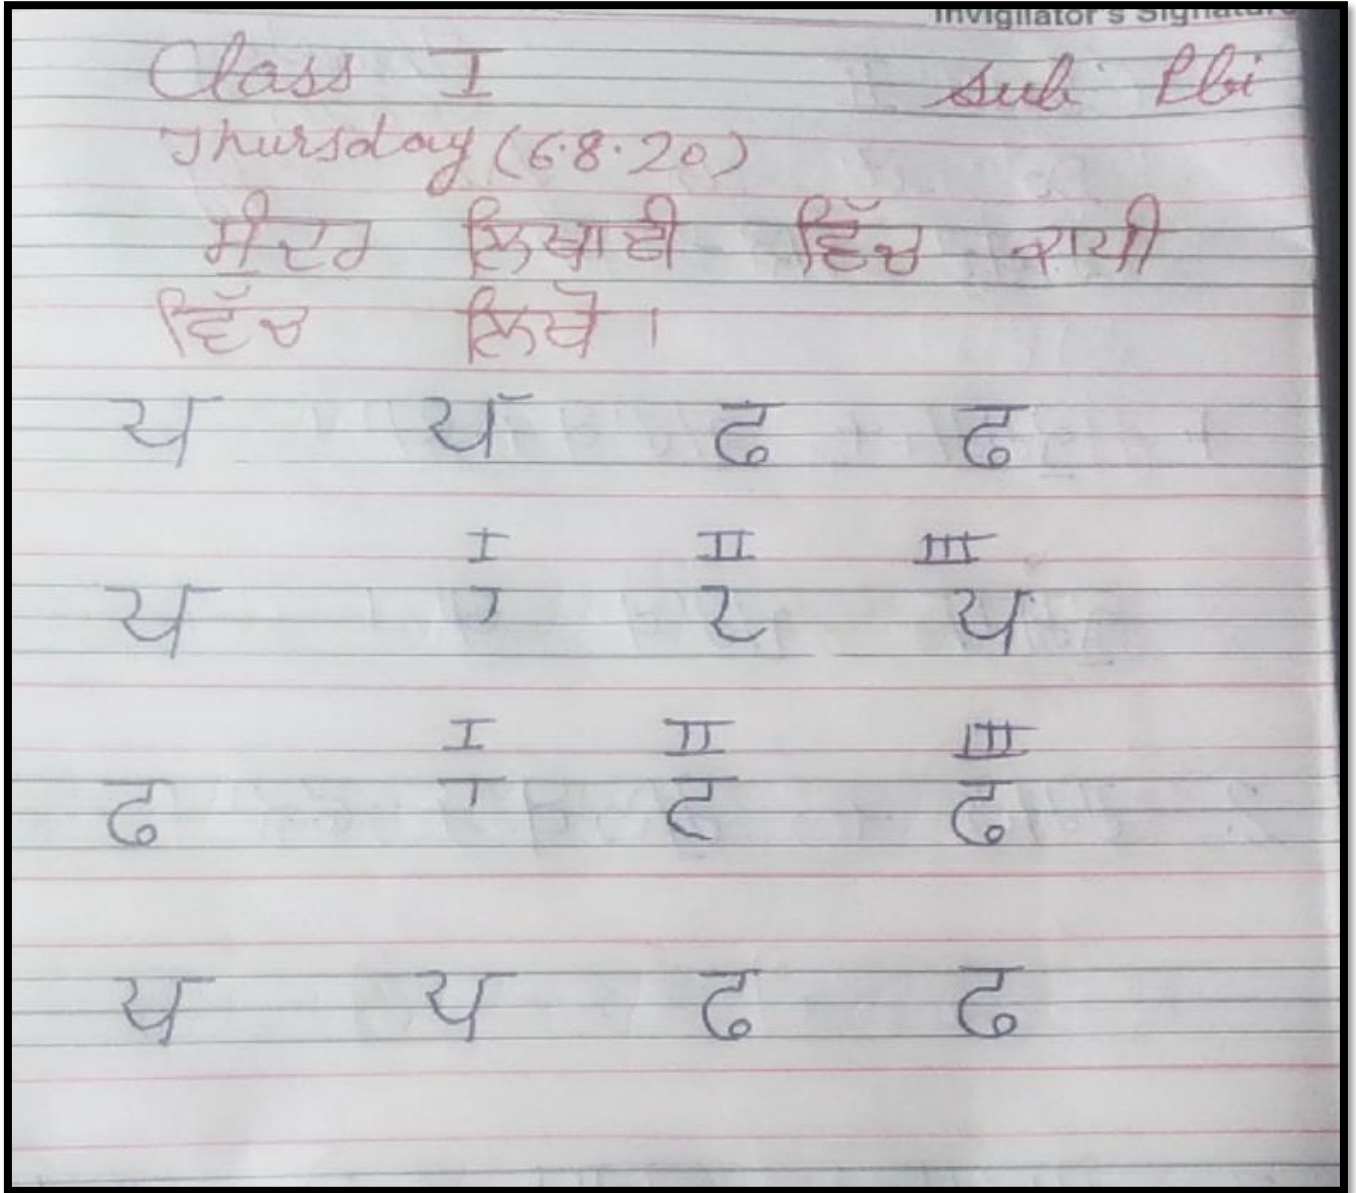 Invigilator's Signature
Class I Sub Pbi
Thursday (6.8.20)
ਸੁੰਦਰ ਲਿਖਾਈ ਵਿੱਚ ਕਾਪੀ
ਵਿੱਚ ਲਿਖੋ ।
ਯ ਯ ਢ ਢ
I II III
ਯ ਯ
I II III
ਢ ਢ
ਯ ਯ ਢ ਢ